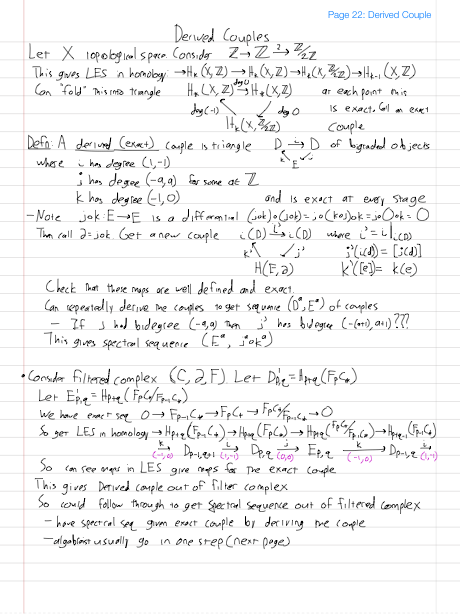 Page 22: Derived Couple
Derived Couples
Let X topological space. Consider ℤ→ℤ →² ℤ/2ℤ
This gives LES in homology →Hₖ(X,ℤ)→Hₖ(X,ℤ)→Hₖ(X,ℤ/2ℤ)→Hₖ₋₁(X,ℤ)
Can "fold" this into triangle H_*(X,ℤ) →deg 0 H_*(X,ℤ) at each point this
deg(-1) deg 0 is exact. Call an exact
Hₖ(X,ℤ/2ℤ) couple
Defn: A derived (exact) couple is triangle D →i D of bigraded objects
k E j
where i has degree (1,-1)
j has degree (-a,a) for some a∈ℤ
k has degree (-1,0) and is exact at every stage
-Note j∘k: E→E is a differential (j∘k)∘(j∘k)=j∘(k∘j)∘k=j∘0∘k=0
Then call ∂=j∘k. Get a new couple i(D) →i' i(D) where i'=i|i(D)
k' j' j'(i(d))=[j(d)]
H(E,∂) k'([e])=k(e)
Check that these maps are well defined and exact.
Can repeatedly derive the couples to get sequence (Dᵃ,Eᵃ) of couples
- If j had bidegree (-a,a) then j' has bidegree (-(a+1),a+1)???
This gives spectral sequence (Eᵃ, jᵃ∘kᵃ)
• Consider filtered complex (C,∂,F). Let D'p,q = Hp+q(FpC*)
Let E'p,q = Hp+q(FpC*/Fp-1C*)
We have exact seq 0→Fp-1C*→FpC*→FpC*/Fp-1C*→0
So get LES in homology →Hp+q(Fp-1C*)→Hp+q(FpC*)→Hp+q(FpC*/Fp-1C*)→Hp+q-1(Fp-1C*)
k→(-1,0) Dp-1,q+1 i→(1,-1) Dp,q j→(0,0) Ep,q k→(-1,0) Dp-1,q i→(1,-1)
So can see maps in LES give maps for the exact couple
This gives Derived couple out of filter complex
So could follow through to get spectral sequence out of filtered complex
- have spectral seq given exact couple by deriving the couple
- algebraist usually go in one step (next page)